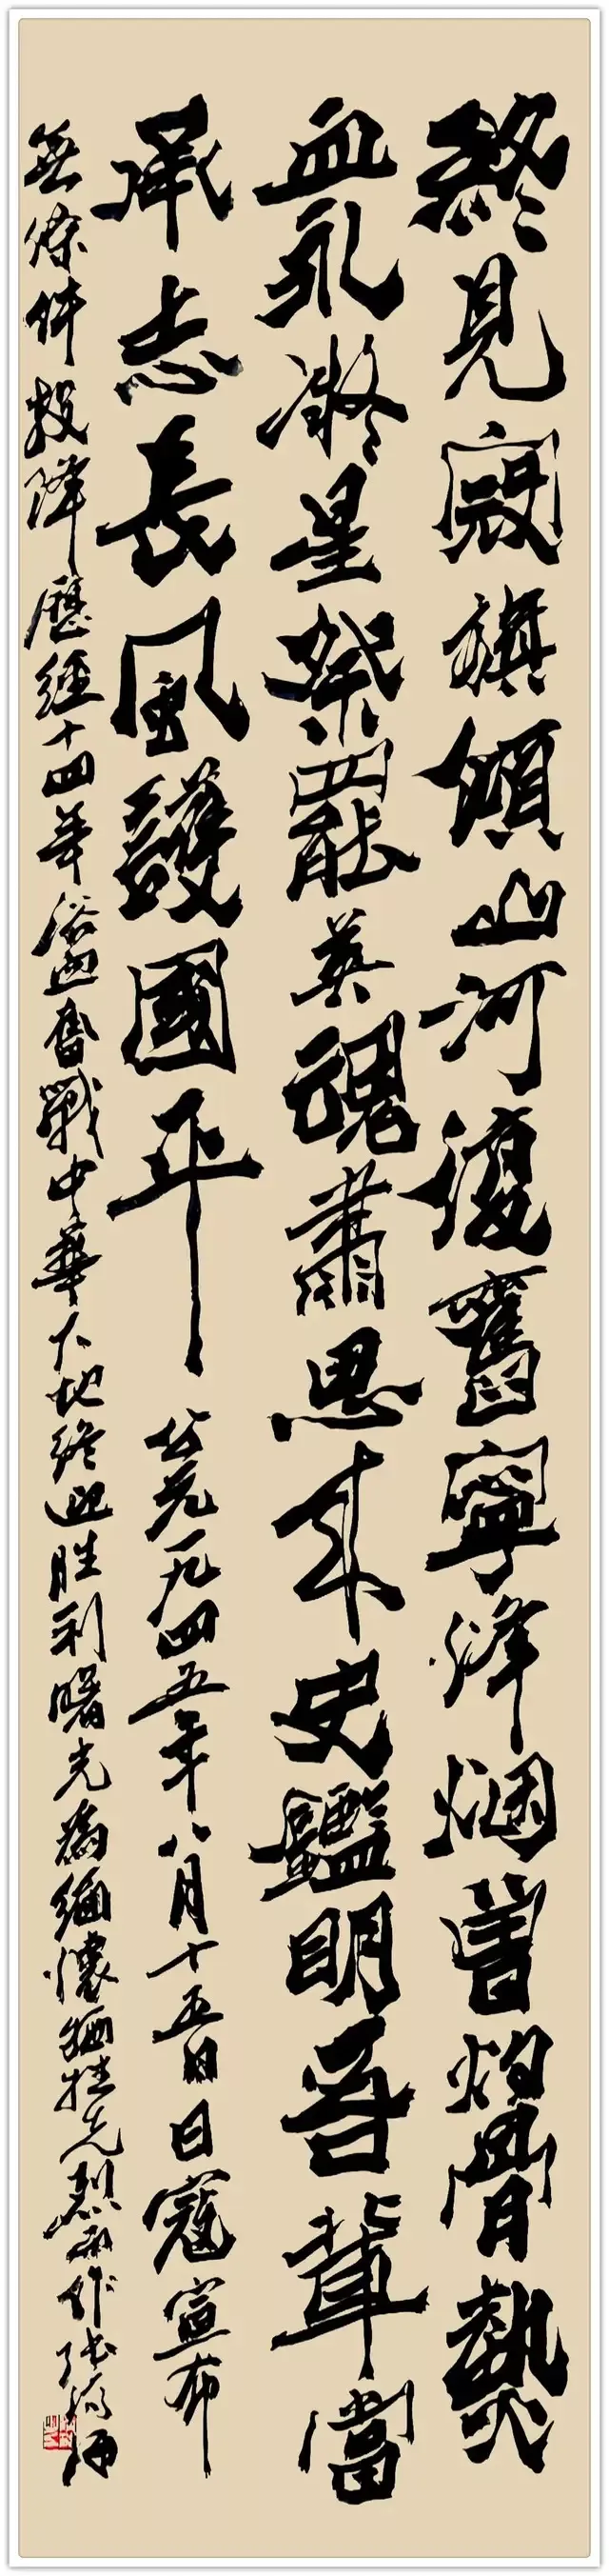 終見寇旗傾山河復舊寧烽烟曾灼骨熱
血永凝星祭罷英魂肅思來史鑑明吾輩當
承志長風護國平 公元一九四五年八月十五日日寇宣布
無條件投降歷經十四年浴血奮戰中華大地終迎胜利曙光為緬懷犧牲先烈而作張